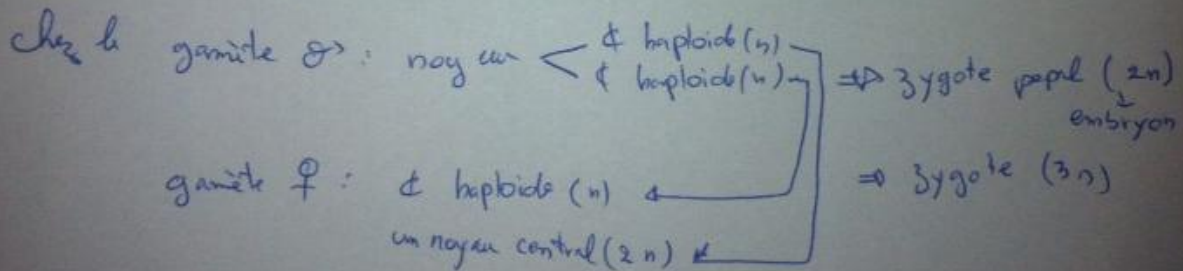 Chez le gamète ♂ : noyau < ¢ haploide (n)
¢ haploide (n) ⇒ zygote ppal (2n)
embryon
gamète ♀ : ¢ haploide (n) ⇒ zygote (3n)
un noyau central (2n)